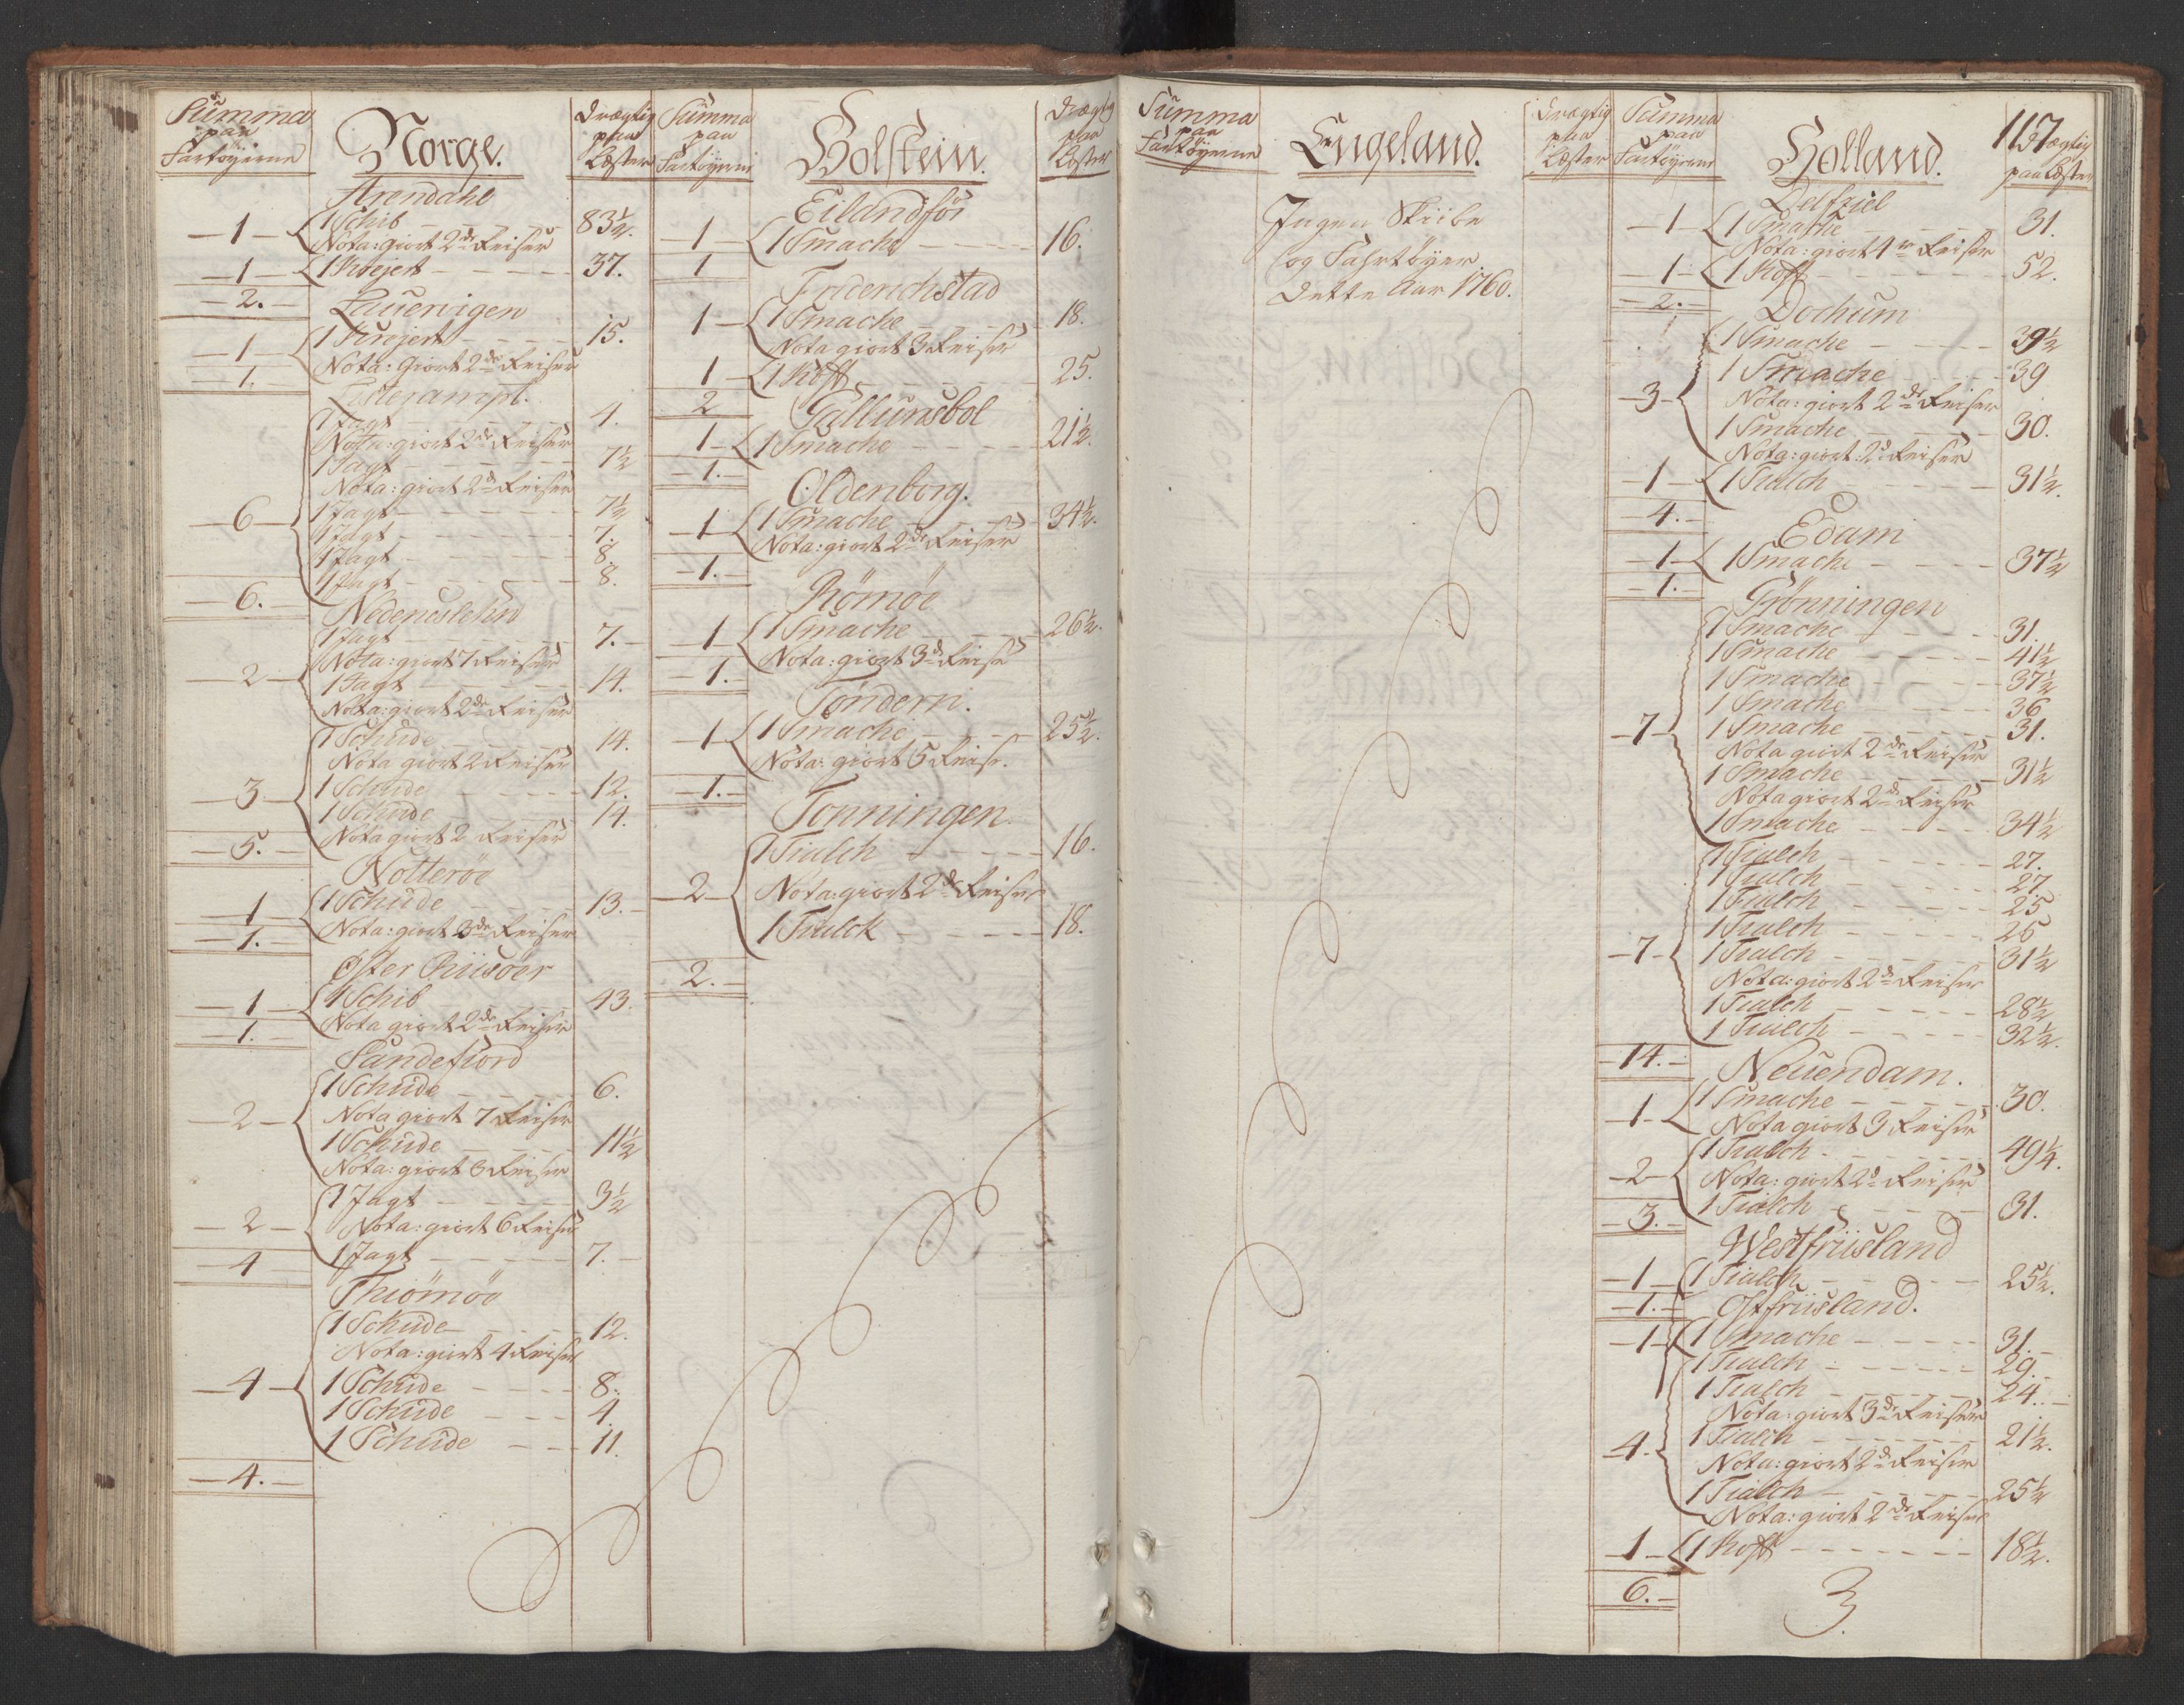 Summa
paa
Fartøyerne
Norge.
Drægtig
paa
Læster
Arendahl
—1— 1 Schib - - - 83½.
Nota: giort 2de Reiser
—1— 1 Krejert - - - - - 37.
—2.—
Laurvigen
—1— 1 Krejert - - - - 15.
Nota: Giort 2de Reiser
—1.
1 Jagt - - - - - 4.
Nota: giort 2de Reiser
1 Jagt - - - - - 7½
Nota: giort 2de Reiser
—6— 1 Jagt - - - - - 7½
1 Jagt - - - - - 7.
1 Jagt - - - - - 8.
1 Jagt - - - - - 8.
—6.—
Nedeneslehn
1 Jagt - - - - - 7.—
Nota: giort 7 Reiser
—2— 1 Jagt - - - - - 14.
Nota: giort 2de Reiser
1 Schude - - - - 14.
Nota giort 2 Reiser
—3— 1 Schude - - - - 12.
1 Schude - - - - 14.
Nota giort 2 Reiser
—5.—
Notterøe
—1— 1 Schude - - - - 13.—
Nota: giort 3de Reiser
—1.—
Øster Riisøer
—1— 1 Schib - - - - 43.
Nota giort 2de Reiser
—1.—
Sandefiord
1 Schude - - - - 6.
Nota giort 7 Reiser
—2— 1 Schude - - - - 11½
Nota: giort 6 Reiser
1 Jagt - - - - - 3½
—2— Nota: giort 6 Reiser
1 Jagt - - - - - 7.—
—4
Thiømøe
1 Schude - - - - 12.
Nota: giort 4 Reiser
—4— 1 Schude - - - - 8.
1 Schude - - - - 4.
1 Schude - - - - 11.
—4.—
Summa
paa
Fartøyerne
Holstein.
Drægtig
paa
Læster
—1— 1 Smache - - - - 16.
1
Friderichstad
1— 1 Smache - - - - 18.
Nota giort 3 Reiser
1— 1 Koff - - - - - 25.
2
Gallunsbol
1— 1 Smache - - - - 21½.
—1.—
Oldenborg.
—1— 1 Smache - - - - 34½.
Nota: giort 2de Reiser
—1.—
Rømøe
—1— 1 Smache - - - - 26½.
Nota: giort 3de Reise
—1.—
Tøndern.
—1— 1 Smache - - - - 25½.
Nota: giort 5 Reise.
—1.—
Tonningen
1 Tialch - - - - - 16.
—2— Nota: giort 2de Reiser
1 Tialck - - - - - 18.
2.—
Summa
paa
Fartøyerne
Engeland.
Drægtig
paa
Læster
Ingen Skiibe
og Fahrtøyer
Dette Aar 1760.
Summa
paa
Fartøyerne
Holland.
117
Drægtig
paa Læster
Delfziel
—1— 1 Smache - - - - 31.
Nota: giort 4re Reiser
—1— 1 Koff - - - - - 52.
—2.—
Dochum
1 Smache - - - - 39½
1 Smache - - - - 39
—3— Nota: giort 2de Reiser
1 Smache - - - - 30.
Nota: giort 2de Reiser
—1— 1 Tialch - - - - 31½.
—4.—
Edam
—1— 1 Smache - - - - 37½
—1.—
Grönningen
1 Smache - - - - 31.
1 Smache - - - - 41½
1 Smache - - - - 37½
1 Smache - - - - 36
—7— 1 Smache - - - - 31.
Nota giort 2de Reiser
1 Smache - - - - 31½
Nota giort 2de Reiser
1 Smache - - - - 34½
1 Tialch - - - - 27.
1 Tialch - - - - 27
1 Tialch - - - - 25
1 Tialch - - - - 26
—7— 1 Tialch - - - - 31½
Nota: giort 2de Reiser
1 Tialch - - - - 28½
1 Tialch - - - - 32½.
—14.—
Neuendam.
—1— 1 Smache - - - - 30.
Nota giort 3 Reiser
1 Tialch - - - - 49¼.
—2— Nota: giort 2de Reiser
1 Tialch - - - - 31.
—3.—
Westfriisland
—1— 1 Tialch - - - - 25½.
—1.—
Ostfriisland.
—1— 1 Smache - - - - 31.—
1 Tialch - - - - 29.
1 Tialch - - - - 24.
Nota: giort 3de Reiser
—4— 1 Tialch - - - - 21½.
Nota: giort 2de Reiser
1 Tialch - - - - 25½
Nota: giort 2de Reiser
—1— 1 Koff - - - - - 18½.
6.—
3.